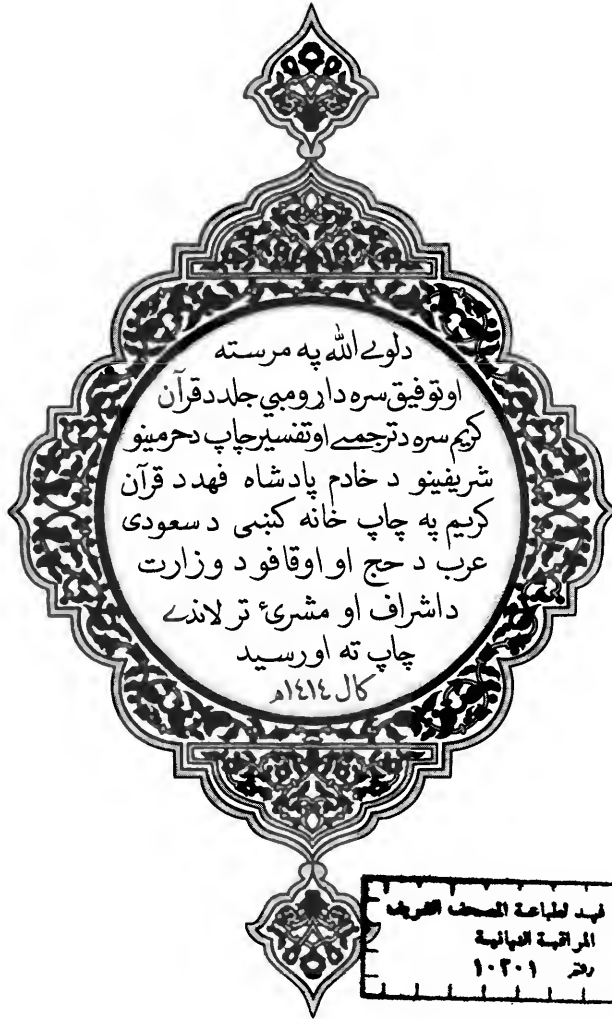 دلوے الله په مرسته
اوتوفيق سره دا ړومبي جلد د قرآن
کريم سره د ترجمے او تفسير چاپ د حرمينو
شريفينو د خادم پادشاه فهد د قرآن
کريم په چاپ خانه کښی د سعودی
عرب د حج او اوقافو د وزارت
د اشراف او مشرئ تر لاندے
چاپ ته اورسيد
کال ١٤١٤ه
فهد لطباعة المصحف الشريف
المراقبة النهائية
دفتر ١٠٢٠١